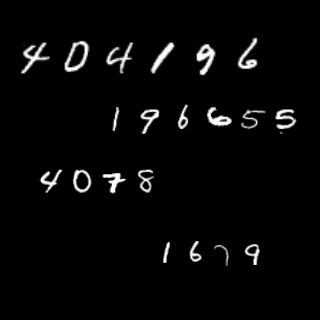 404196
196655
4078
1679